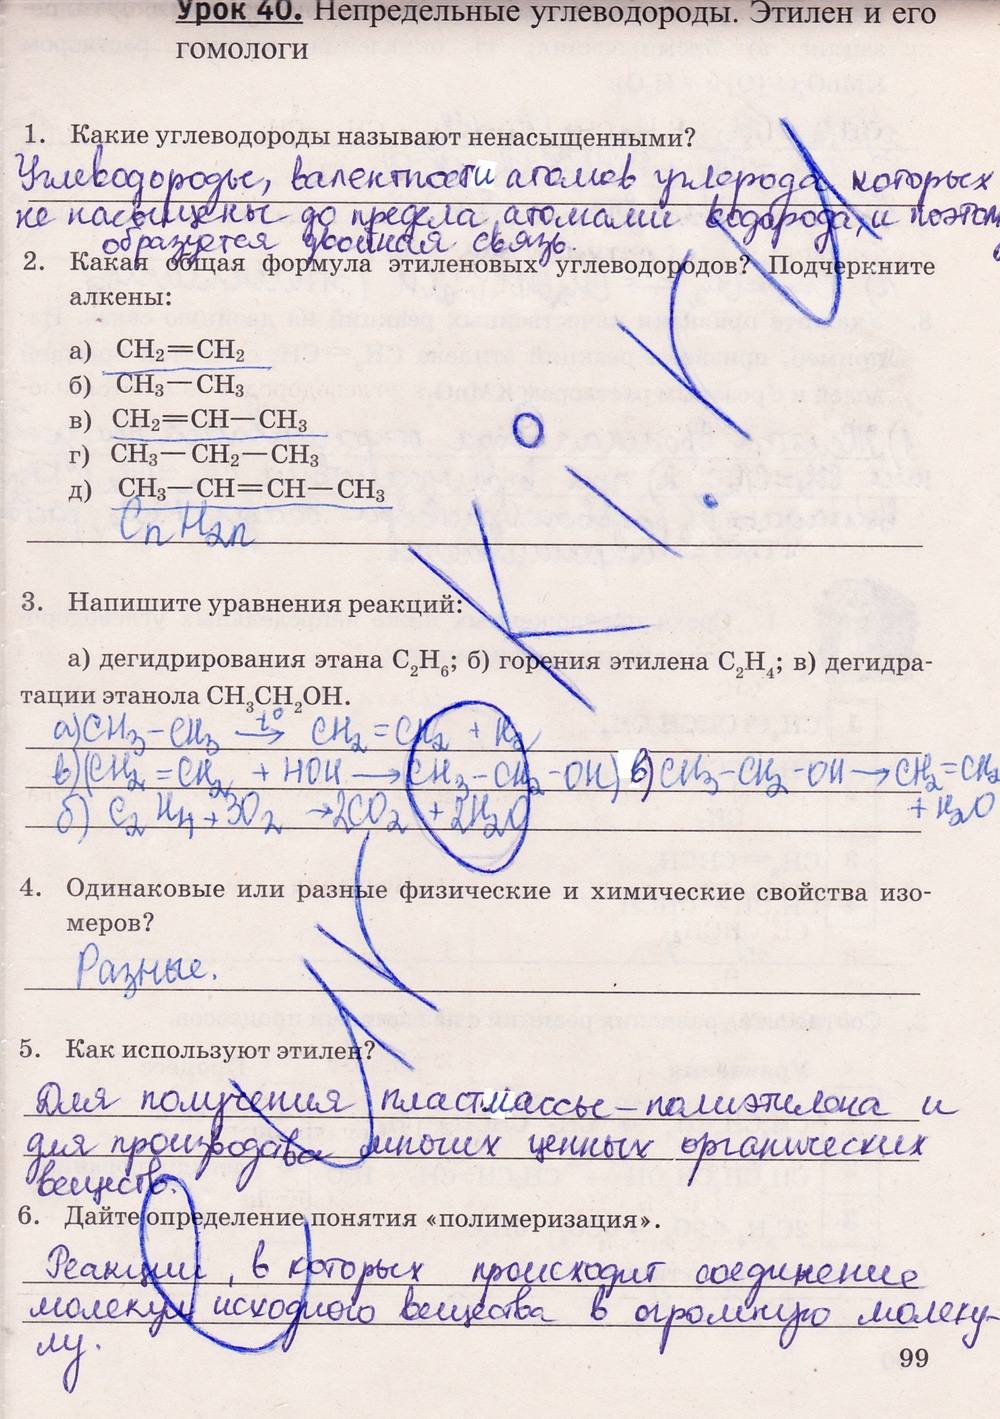 Урок 40. Непредельные углеводороды. Этилен и его
гомологи
1. Какие углеводороды называют ненасыщенными?
Углеводороды, валентности атомов углерода которых
не насыщены до предела атомами водорода, и поэтому
образуется двойная связь.
2. Какая общая формула этиленовых углеводородов? Подчеркните
алкены:
а) CH₂=CH₂
б) CH₃—CH₃
в) CH₂=CH—CH₃
г) CH₃—CH₂—CH₃
д) CH₃—CH=CH—CH₃
CnH2n
3. Напишите уравнения реакций:
а) дегидрирования этана C₂H₆; б) горения этилена C₂H₄; в) дегидра-
тации этанола CH₃CH₂OH.
а) CH₃-CH₃ →t° CH₂=CH₂ + H₂
в) (CH₂=CH₂ + HOH → CH₃-CH₂-OH) в) CH₃-CH₂-OH → CH₂=CH₂
+ H₂O
б) C₂H₄+3O₂ →2CO₂ + 2H₂O
4. Одинаковые или разные физические и химические свойства изо-
меров?
Разные.
5. Как используют этилен?
Для получения пластмассы – полиэтилена и
для производства многих ценных органических
веществ.
6. Дайте определение понятия «полимеризация».
Реакции, в которых происходит соединение
молекул исходного вещества в огромную молеку-
лу.
99